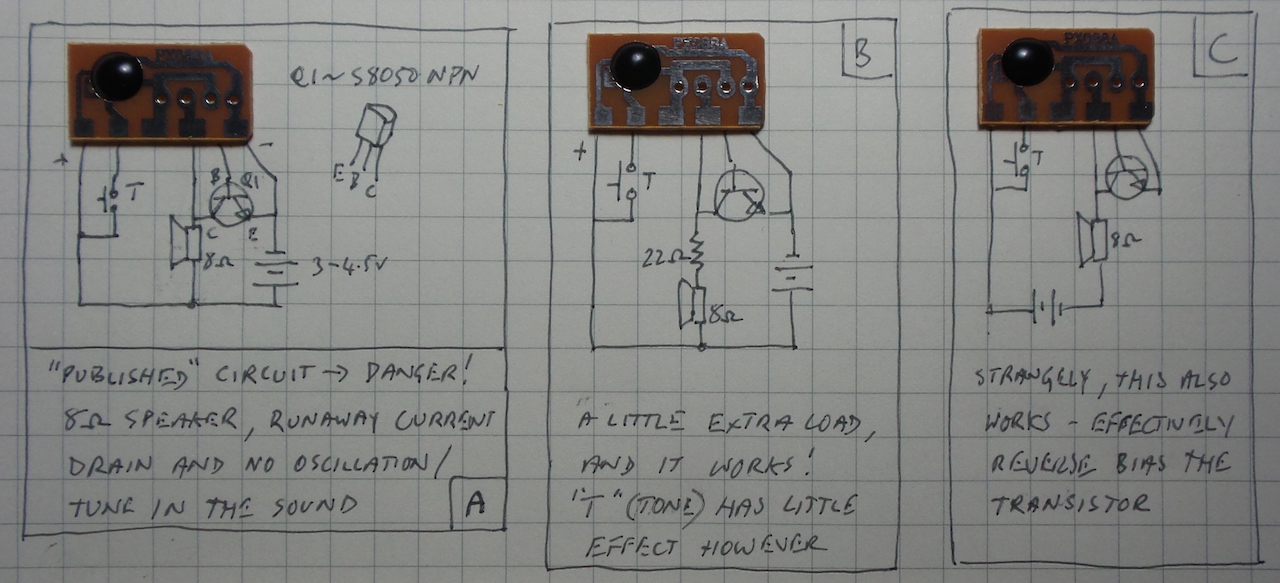 Q1~S8050 NPN
E B C
+
-
T
B Q1
C
E
8Ω
3-4.5V
"PUBLISHED" CIRCUIT → DANGER!
8Ω SPEAKER, RUNAWAY CURRENT
DRAIN AND NO OSCILLATION/
TUNE IN THE SOUND
A
B
+
T
22Ω
8Ω
A LITTLE EXTRA LOAD,
AND IT WORKS!
"T" (TONE) HAS LITTLE
EFFECT HOWEVER
C
T
8Ω
STRANGELY, THIS ALSO
WORKS - EFFECTIVELY
REVERSE BIAS THE
TRANSISTOR